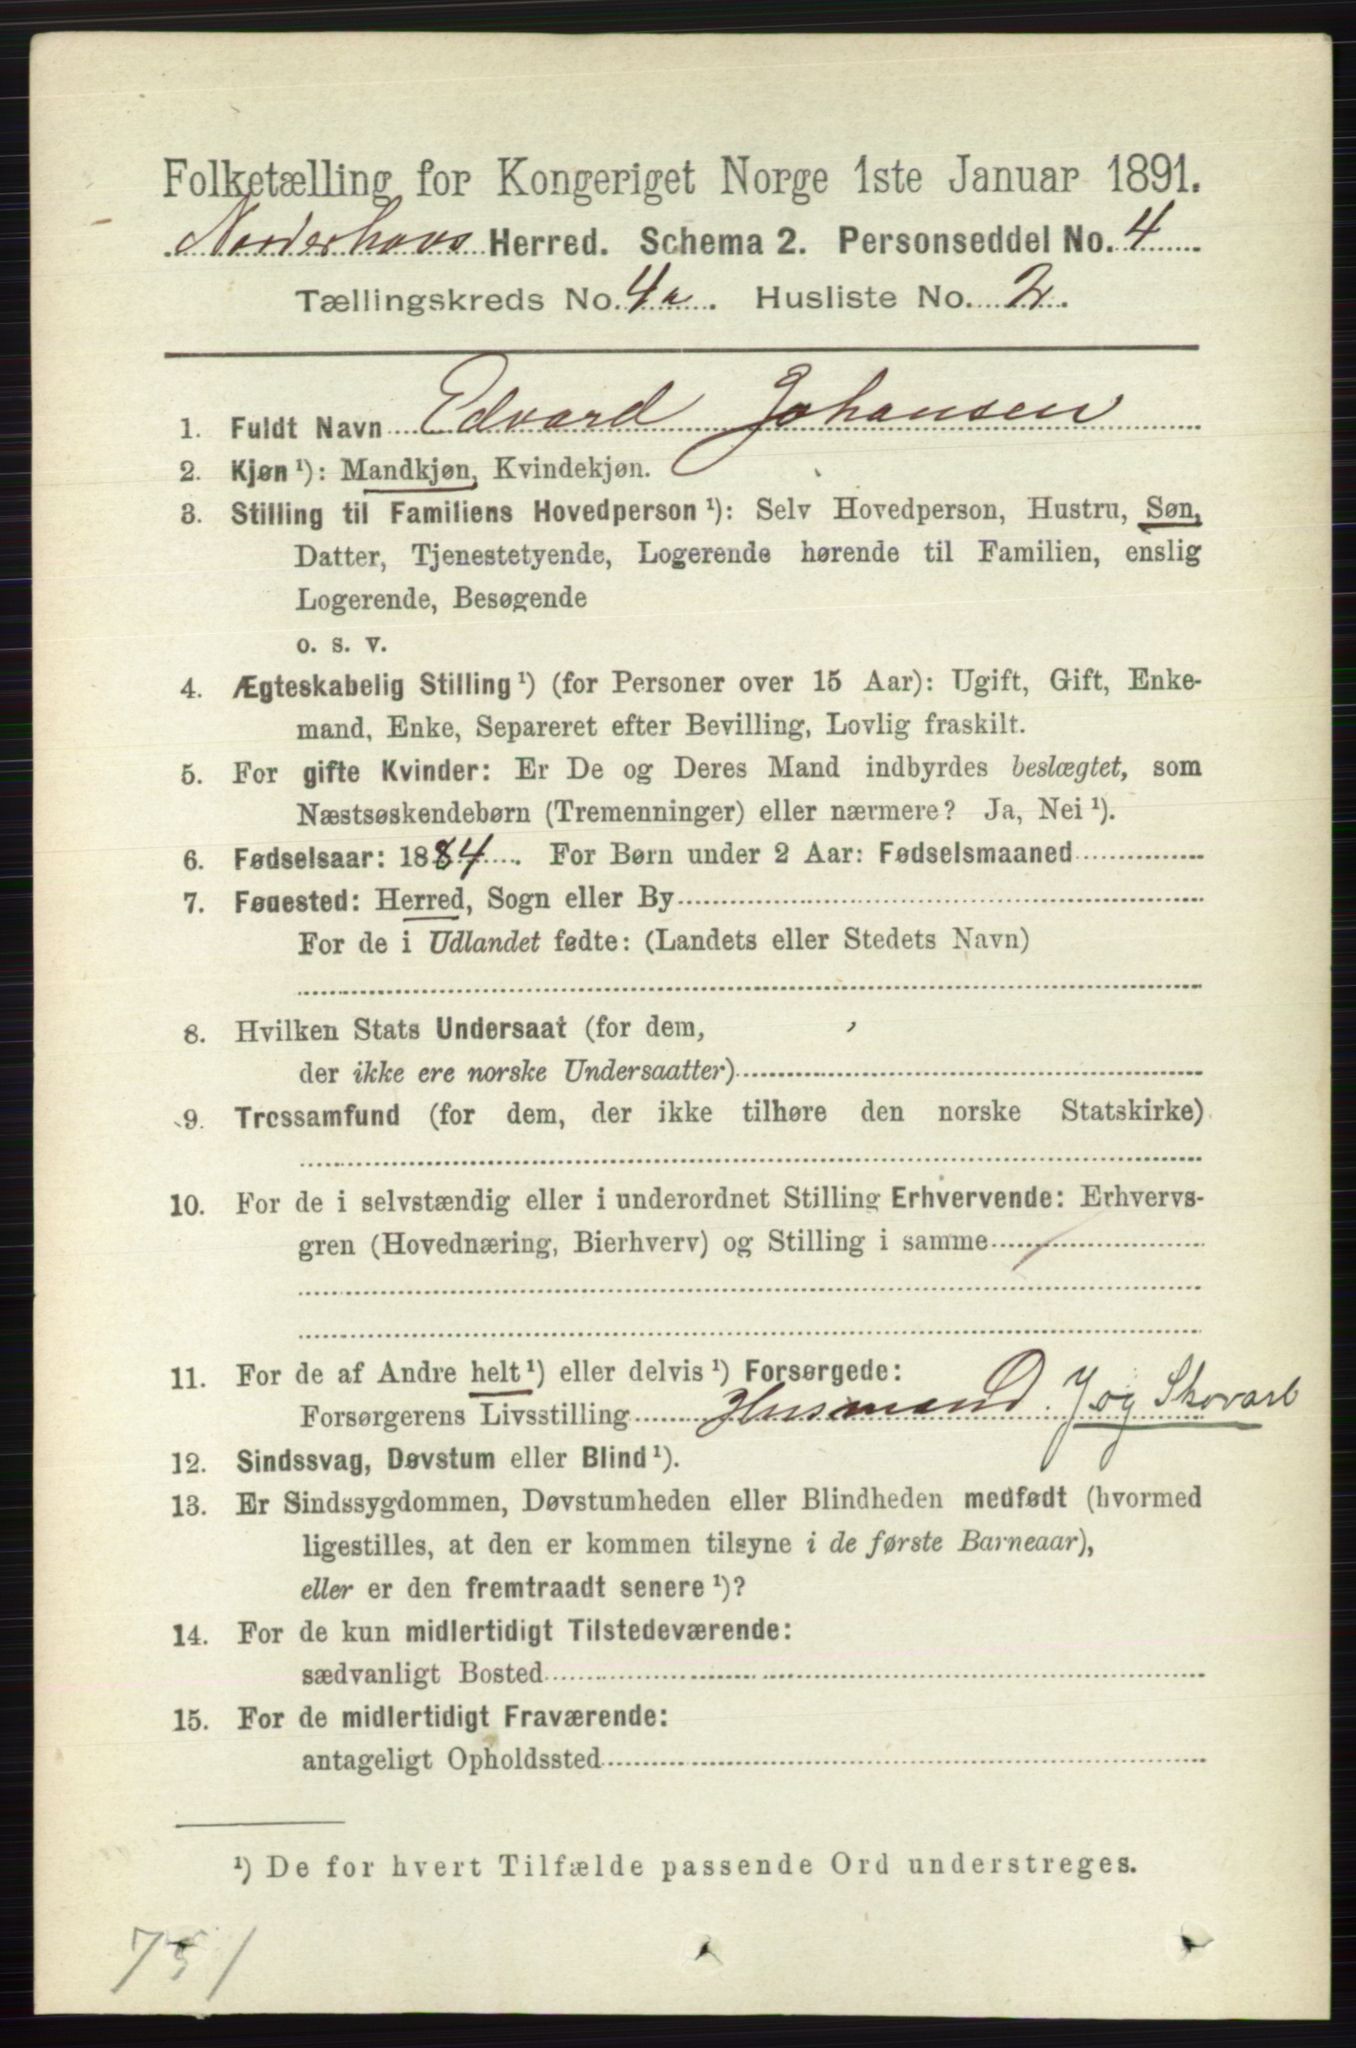 Folketælling for Kongeriget Norge 1ste Januar 1891.
Norderhovs Herred. Schema 2. Personseddel No. 4
Tællingskreds No. 4a. Husliste No. 2.
1. Fuldt Navn Edvard Johansen
2. Kjøn ¹): Mandkjøn, Kvindekjøn.
3. Stilling til Familiens Hovedperson ¹): Selv Hovedperson, Hustru, Søn,
Datter, Tjenestetyende, Logerende hørende til Familien, enslig
Logerende, Besøgende
o. s. v.
4. Ægteskabelig Stilling ¹) (for Personer over 15 Aar): Ugift, Gift, Enke-
mand, Enke, Separeret efter Bevilling, Lovlig fraskilt.
5. For gifte Kvinder: Er De og Deres Mand indbyrdes beslægtet, som
Næstsøskendebørn (Tremenninger) eller nærmere? Ja, Nei ¹).
6. Fødselsaar: 1884. For Børn under 2 Aar: Fødselsmaaned
7. Fødested: Herred, Sogn eller By
For de i Udlandet fødte: (Landets eller Stedets Navn)
8. Hvilken Stats Undersaat (for dem,
der ikke ere norske Undersaatter)
9. Trossamfund (for dem, der ikke tilhøre den norske Statskirke)
10. For de i selvstændig eller i underordnet Stilling Erhvervende: Erhvervs-
gren (Hovednæring, Bierhverv) og Stilling i samme
11. For de af Andre helt ¹) eller delvis ¹) Forsørgede:
Forsørgerens Livsstilling Husmand. J og Skovarb
12. Sindssvag, Døvstum eller Blind ¹).
13. Er Sindssygdommen, Døvstumheden eller Blindheden medfødt (hvormed
ligestilles, at den er kommen tilsyne i de første Barneaar),
eller er den fremtraadt senere ¹)?
14. For de kun midlertidigt Tilstedeværende:
sædvanligt Bosted
15. For de midlertidigt Fraværende:
antageligt Opholdssted
¹) De for hvert Tilfælde passende Ord understreges.
751